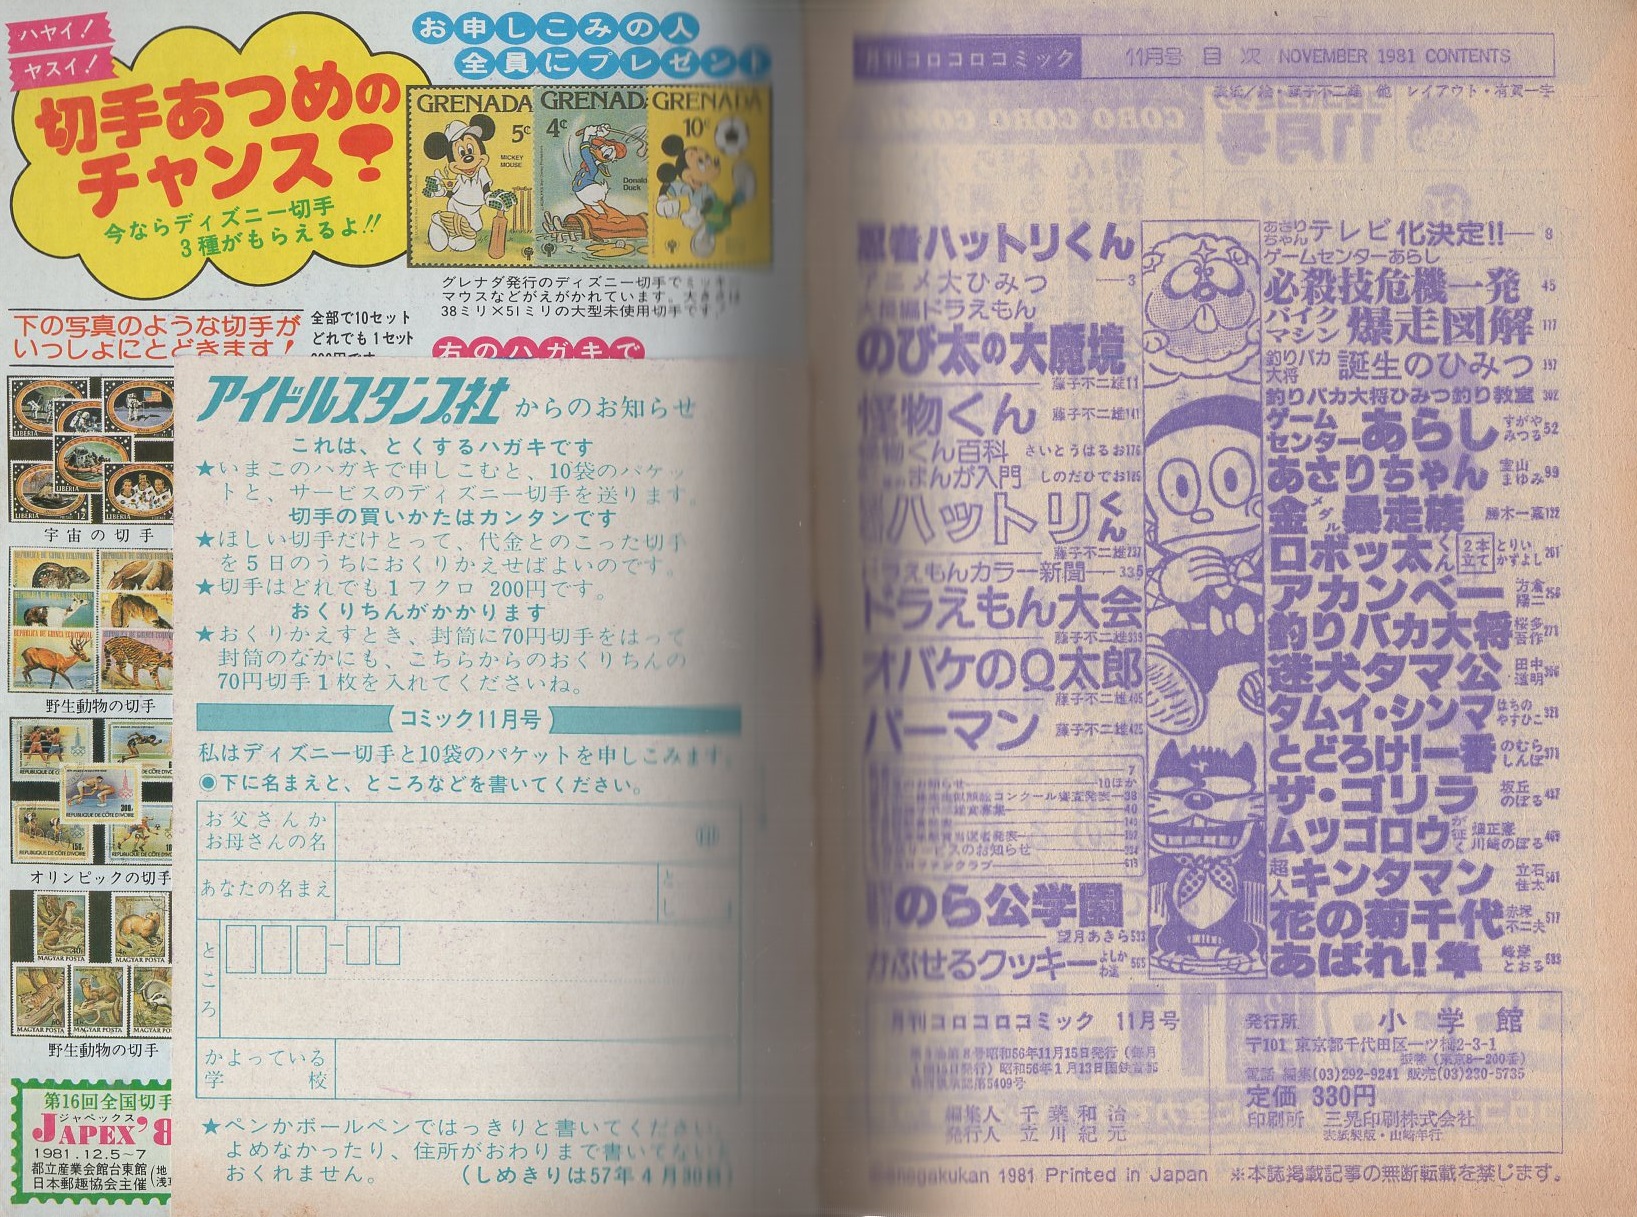 ハヤイ!
ヤスイ!
切手あつめの
チャンス?
今ならディズニー切手
3種がもらえるよ!!
お申しこみの人
全員にプレゼント
GRENADA
5¢
MICKEY
MOUSE
GRENAD
4¢
Donald
Duck
GRENADA
10¢
グレナダ発行のディズニー切手でミッキー
マウスなどがえがかれています。大きさは
38ミリ×51ミリの大型未使用切手です。
下の写真のような切手が
いっしょにとどきます!
全部で10セット
どれでも1セット
右のハガキで
LIBERIA
LIBERIA
LIBERIA
宇宙の切手
REPUBLICA DE GUINEA ECUATORIAL
野生動物の切手
REPUBLIQUE DE CÔTE D'IVOIRE
オリンピックの切手
MAGYAR POSTA
MAGYAR POSTA
MAGYAR POSTA
MAGYAR POSTA
野生動物の切手
第16回全国切手
ジャペックス
JAPEX'8
1981.12.5~7
都立産業会館台東館
日本郵趣協会主催
アイドルスタンプ社からのお知らせ
これは、とくするハガキです
★いまこのハガキで申しこむと、10袋のパケッ
トと、サービスのディズニー切手を送ります。
切手の買いかたはカンタンです
★ほしい切手だけとって、代金とのこった切手
を5日のうちにおくりかえせばよいのです。
★切手はどれでも1フクロ 200円です。
おくりちんがかかります
★おくりかえすとき、封筒に70円切手をはって
封筒のなかにも、こちらからのおくりちんの
70円切手1枚を入れてくださいね。
コミック11月号
私はディズニー切手と10袋のパケットを申しこみます。
●下に名まえと、ところなどを書いてください。
お父さんか
お母さんの名
㊞
あなたの名まえ
とし
ところ
かよっている
学校
★ペンかボールペンではっきりと書いてください。
よめなかったり、住所がおわりまで書いてないと
おくれません。 (しめきりは57年4月30日)
月刊コロコロコミック 11月号 目次 NOVEMBER 1981 CONTENTS
表紙/絵・藤子不二雄 他 レイアウト・有賀一宇
忍者ハットリくん
アニメ大ひみつ 3
大長編ドラえもん
のび太の大魔境
藤子不二雄11
怪物くん 藤子不二雄141
怪物くん百科 さいとうはるお176
まんが入門 しのだひでお185
ハットリくん
藤子不二雄237
ドラえもんカラー新聞 335
ドラえもん大会
藤子不二雄339
オバケのQ太郎
藤子不二雄405
パーマン 藤子不二雄425
のら公学園
望月あきら533
かぶせるクッキー よしかわ進565
あさりちゃん テレビ化決定!! 8
ゲームセンターあらし
必殺技危機一発 45
バイクマシン 爆走図解 117
釣りバカ大将 誕生のひみつ 197
釣りバカ大将ひみつ釣り教室 302
ゲームセンターあらし すがやみつる52
あさりちゃん 室山まゆみ99
金メダル暴走族 勝木一嘉122
ロボッ太くん 2本立て とりいかずよし201
アカンベー 方倉陽二256
釣りバカ大将 桜多吾作271
迷犬タマ公 田中道明306
タムイ・シンマ はちのやすひこ321
とどろけ!一番 のむらしんぼ371
ザ・ゴリラ 坂丘のぼる437
ムツゴロウが征く 畑正憲 川崎のぼる469
超人キンタマン 立石佳太501
花の菊千代 赤塚不二夫517
あばれ!隼 峰岸とおる583
月刊コロコロコミック 11月号
昭和56年11月15日発行(毎月
編集人 千葉和治
発行人 立川紀元
発行所 小学館
〒101 東京都千代田区一ツ橋2-3-1
振替(東京8-200番)
電話 編集(03)292-9241 販売(03)230-5735
定価 330円
印刷所 三晃印刷株式会社
表紙製版・山崎洋行
Shogakukan 1981 Printed in Japan ※本誌掲載記事の無断転載を禁じます。